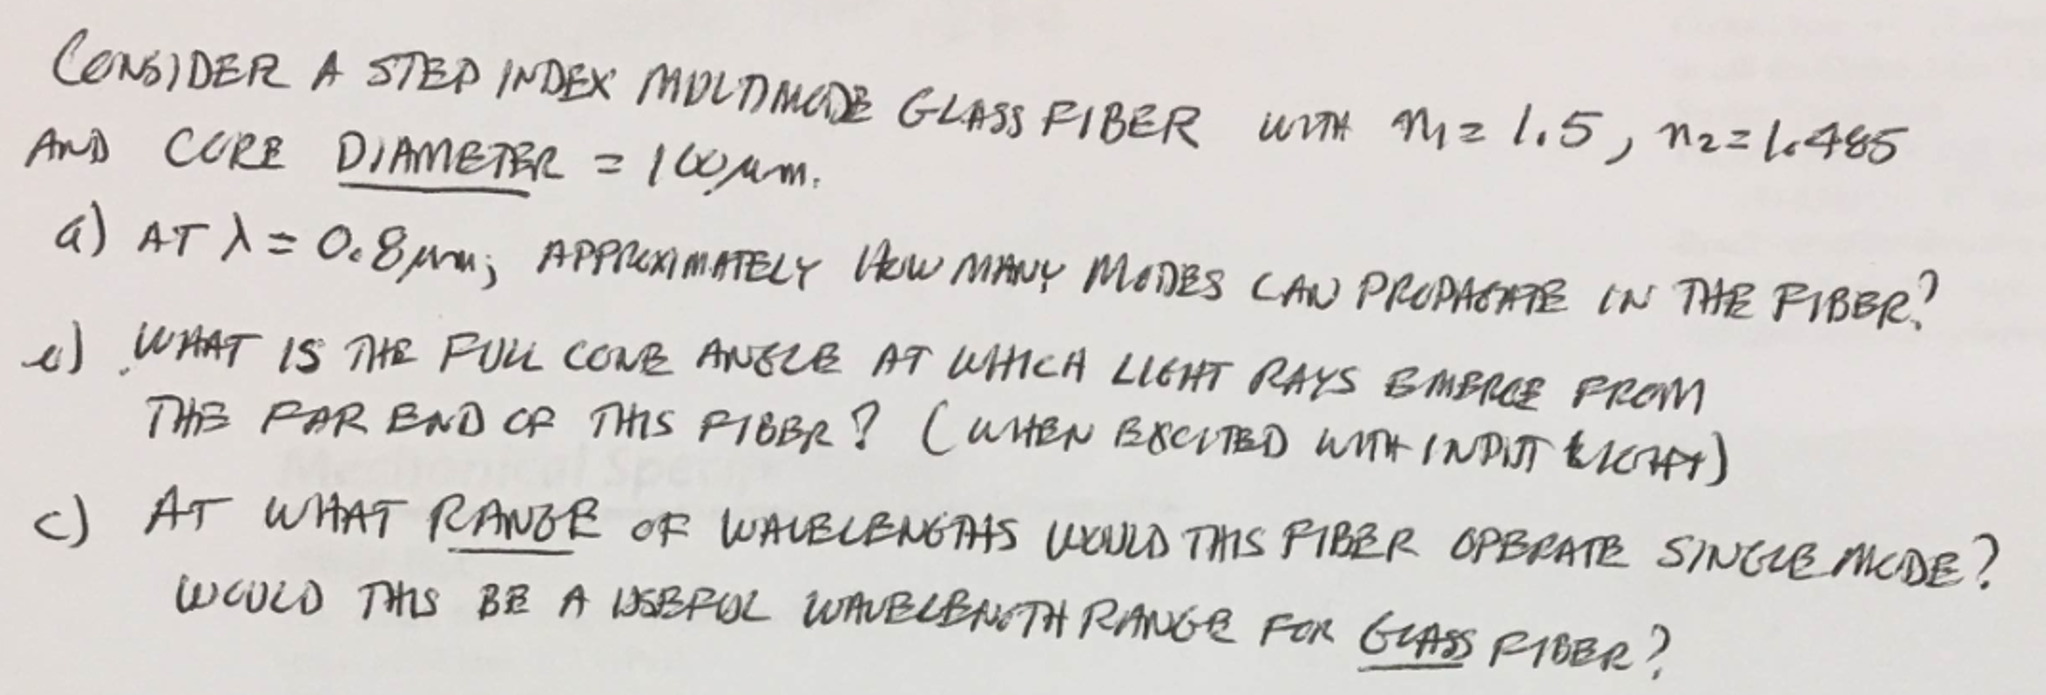 CONSIDER A STEP INDEX MULTIMODE GLASS FIBER WITH n1 = 1.5, n2 = 1.485
AND CORE DIAMETER = 100 μm.
a) AT λ = 0.8 μm; APPROXIMATELY HOW MANY MODES CAN PROPAGATE IN THE FIBER?
b) WHAT IS THE FULL CONE ANGLE AT WHICH LIGHT RAYS EMERGE FROM
THE FAR END OF THIS FIBER? (WHEN EXCITED WITH INPUT LIGHT)
c) AT WHAT RANGE OF WAVELENGTHS WOULD THIS FIBER OPERATE SINGLE MODE?
WOULD THIS BE A USEFUL WAVELENGTH RANGE FOR GLASS FIBER?